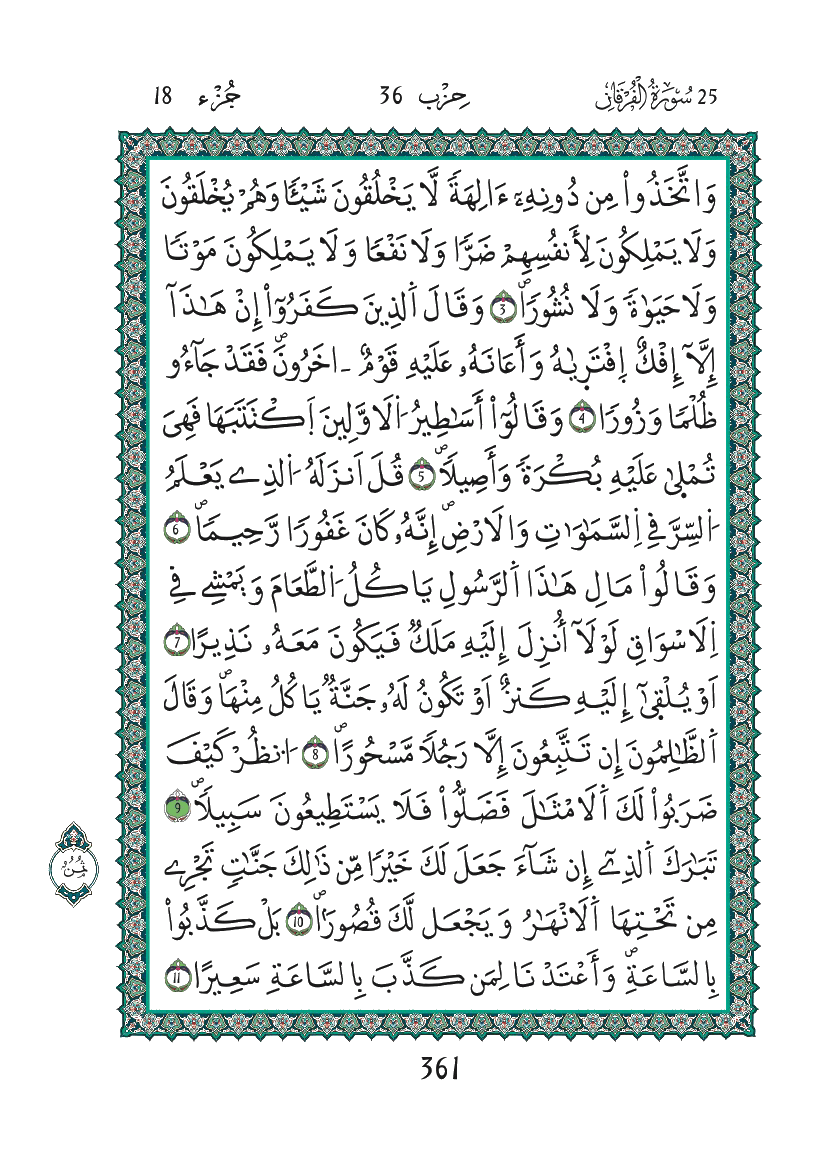 25 سُورَةُ الْفُرْقَانِ حِزْب 36 جُزْء 18
وَاتَّخَذُواْ مِن دُونِهِۦٓ ءَالِهَةٗ لَّا يَخْلُقُونَ شَيْـٔٗا وَهُمْ يُخْلَقُونَ
وَلَا يَمْلِكُونَ لِأَنفُسِهِمْ ضَرّٗا وَلَا نَفْعٗا وَلَا يَمْلِكُونَ مَوْتٗا
وَلَا حَيَوٰةٗ وَلَا نُشُورٗاۖ 3 وَقَالَ اَ۬لذِينَ كَفَرُوٓاْ إِنْ هَٰذَآ
إِلَّآ إِفْكٌ اِ۪فْتَر۪يٰهُ وَأَعَانَهُۥ عَلَيْهِ قَوْمٌ ـ اخَرُونَۖ فَقَدْ جَآءُو
ظُلْمٗا وَزُورٗاۖ 4 وَقَالُوٓاْ أَسَٰطِيرُ اُ۬لَاوَّلِينَ اَ۪كْتَتَبَهَا فَهِيَ
تُمْل۪يٰ عَلَيْهِ بُكْرَةٗ وَأَصِيلٗاۖ 5 قُلَ اَنزَلَهُ اُ۬لذِے يَعْلَمُ
اُ۬لسِّرَّ فِے اِ۬لسَّمَٰوَٰتِ وَالَارْضِۖ إِنَّهُۥ كَانَ غَفُورٗا رَّحِيمٗاۖ 6
وَقَالُواْ مَالِ هَٰذَا اَ۬لرَّسُولِ يَاكُلُ اُ۬لطَّعَامَ وَيَمْشِے فِے
اِ۬لَاسْوَاقِ لَوْلَآ أُنزِلَ إِلَيْهِ مَلَكٞ فَيَكُونَ مَعَهُۥ نَذِيرًا 7
اَوْ يُلْق۪يٰٓ إِلَيْهِ كَنزٌ اَوْ تَكُونُ لَهُۥ جَنَّةٞ يَاكُلُ مِنْهَاۖ وَقَالَ
اَ۬لظَّٰلِمُونَ إِن تَتَّبِعُونَ إِلَّا رَجُلٗا مَّسْحُورًاۖ 8 اُ۟نظُرْ كَيْفَ
ضَرَبُواْ لَكَ اَ۬لَامْثَٰلَ فَضَلُّواْ فَلَا يَسْتَطِيعُونَ سَبِيلٗاۖ 9
تَبَٰرَكَ اَ۬لذِےٓ إِن شَآءَ جَعَلَ لَكَ خَيْرٗا مِّن ذَٰلِكَ جَنَّٰتٖ تَجْرِے
مِن تَحْتِهَا اَ۬لَانْهَٰرُ وَيَجْعَل لَّكَ قُصُورٗاۖ 10 بَلْ كَذَّبُواْ
بِالسَّاعَةِۖ وَأَعْتَدْنَا لِمَن كَذَّبَ بِالسَّاعَةِ سَعِيرًا 11
ثُمُنُ
361